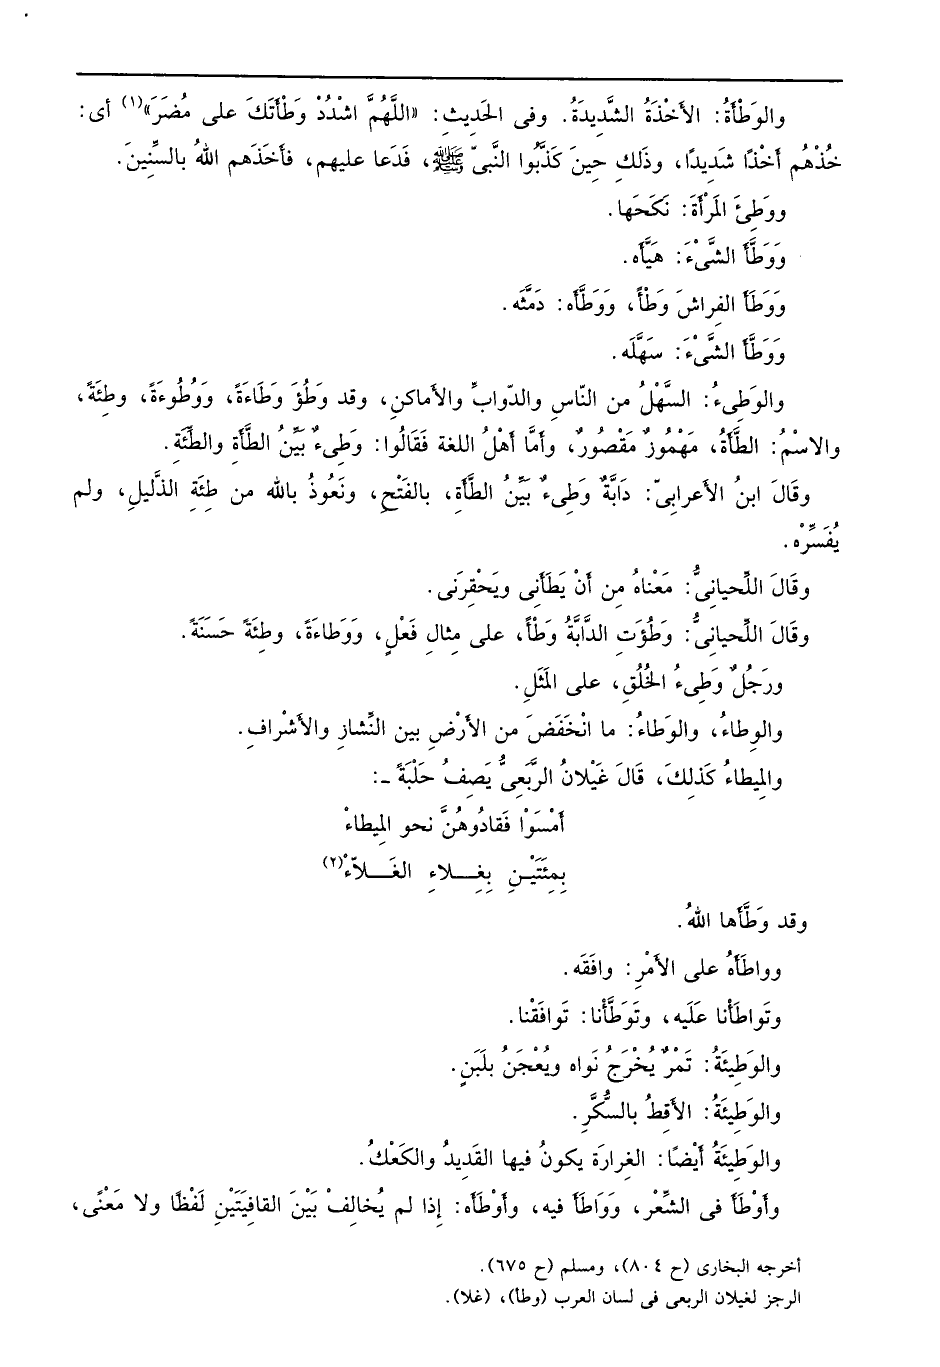 والوَطْأَةُ: الأَخْذَةُ الشَّدِيدَةُ. وفى الحَدِيثِ: «اللَّهُمَّ اشْدُدْ وَطْأَتَكَ على مُضَرَ»(١) أى:
خُذْهُم أَخْذًا شَدِيدًا، وذَلكِ حِينَ كَذَّبُوا النَّبىّ ﷺ، فَدَعا عليهم، فأخَذَهم اللهُ بالسِّنِينَ.
ووَطِئَ المَرْأَةَ: نَكَحَها.
ووَطَّأَ الشَّىْءَ: هَيَّأَه.
ووَطَأَ الفِراشَ وَطْأً، ووَطَّأَه: دَمَّثَه.
ووَطَّأَ الشَّىْءَ: سَهَّلَه.
والوَطِىءُ: السَّهْلُ من النّاسِ والدّوابِّ والأَماكنِ، وقد وَطُؤَ وَطَاءَةً، ووُطُوءَةً، وطِئَةً،
والاسْمُ: الطَّأَةُ، مَهْمُوزٌ مَقْصُورٌ، وأمَّا أَهْلُ اللغة فَقَالُوا: وَطِىءٌ بَيِّنُ الطَّأَةِ والطِّئَةِ.
وقَالَ ابنُ الأعرابىّ: دَابَّةٌ وَطِىءٌ بَيِّنُ الطَّأَةِ، بالفَتْحِ، ونَعُوذُ بالله من طِئَةِ الذَّليلِ، ولم
يُفَسِّرْه.
وقَالَ اللِّحيانىُّ: مَعْناهُ مِن أنْ يَطَأَنى ويَحْقِرَنى.
وقَالَ اللِّحيانىُّ: وَطُؤَتِ الدَّابَّةُ وَطْأً، على مِثالِ فَعْلٍ، ووَطاءَةً، وطِئَةً حَسَنَةً.
ورَجُلٌ وَطِىءُ الخُلُقِ، على المَثَلِ.
والوِطاءُ، والوَطاءُ: ما انْخَفَضَ من الأَرْضِ بين النِّشازِ والأَشْرافِ.
والمِيطاءُ كَذلِكَ، قَالَ غَيْلانُ الرَّبَعىُّ يَصِفُ حَلْبَةً ــ:
أَمْسَوْا فَقادُوهُنَّ نحو المِيطاءْ
بِمِئَتَيْنِ بِغِلاءِ الغَلاَّءْ(٢)
وقد وَطَّأَها اللهُ.
وواطَأَهُ على الأَمْرِ: وافَقَه.
وتَواطَأْنا عَلَيه، وتَوَطَّأْنا: تَوافَقْنا.
والوَطِيئَةُ: تَمْرٌ يُخْرَجُ نَواه ويُعْجَنُ بلَبَنٍ.
والوَطِيئَةُ: الأَقِطُ بالسُّكَّرِ.
والوَطِيئَةُ أَيْضًا: الغِرارَة يكونُ فيها القَدِيدُ والكَعْكُ.
وأَوْطَأَ فى الشِّعْر، ووَاطَأَ فيه، وأَوْطَأَه: إِذا لم يُخالِفْ بَيْنَ القافِيَتَيْنِ لَفْظًا ولا مَعْنًى،
أخرجه البخارى (ح ٨٠٤)، ومسلم (ح ٦٧٥).
الرجز لغيلان الربعى فى لسان العرب (وطأ)، (غلا).